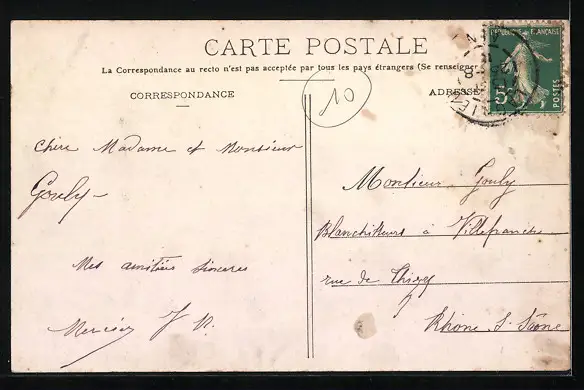 CARTE POSTALE
La Correspondance au recto n'est pas acceptée par tous les pays étrangers (Se renseigner
CORRESPONDANCE
ADRESSE
10
RÉPUBLIQUE FRANÇAISE
5c
POSTES
Chère Madame et Monsieur
Gouly
Mes amitiés sincères
Monsieur Gouly
Blanchisseurs à Villefranche
rue de Thizy
Rhône S. Saône